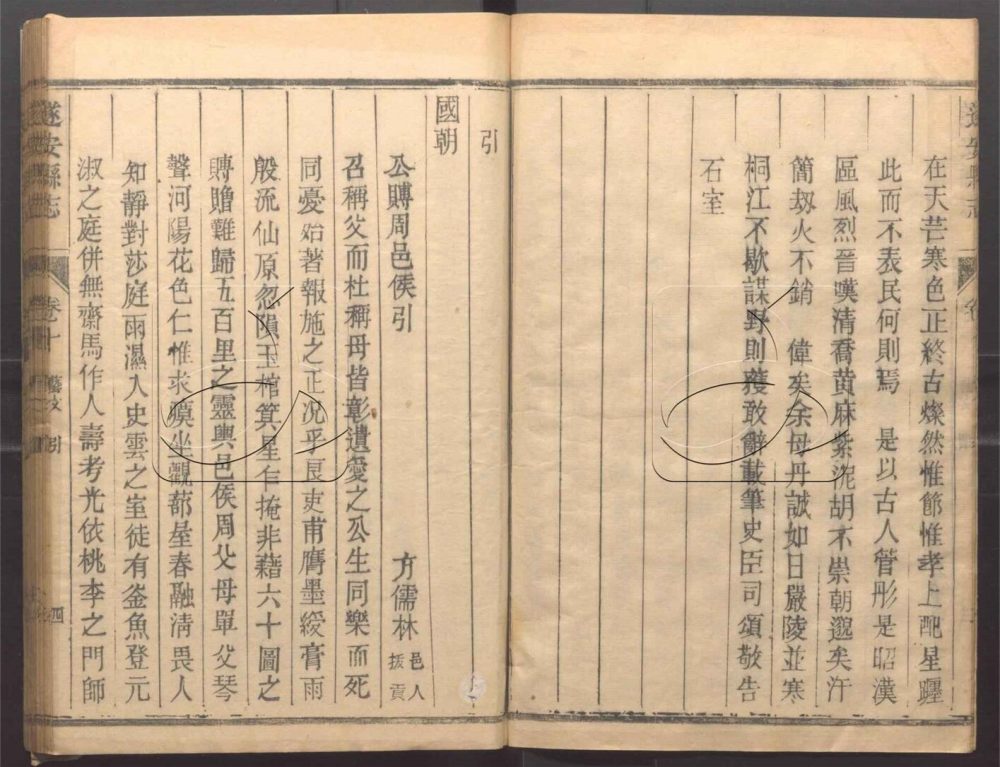 在天芒寒色正終古燦然惟節惟孝上配星躔
此而不表民何則焉　是以古人管彤是昭漢
區風烈晉嘆清喬黃麻紫泥胡不崇朝邈矣汗
簡刼火不銷　偉矣余母丹誠如日嚴陵並寒
桐江不歇謀野則獲敢辭載筆史臣司頌敬告
石室
引
國朝
公賻周邑侯引
方儒林 邑人拔貢
召稱父而杜稱母皆彰遺愛之公生同樂而死
同憂始著報施之正况乎良吏甫膺墨綬膏雨
般流仙原忽隕玉棺箕星乍掩非藉六十圖之
賻贈難歸五百里之靈輿邑侯周父母單父琴
聲河陽花色仁惟求瘼坐觀蔀屋春融清畏人
知靜對莎庭雨濕入史雲之室徒有釜魚登元
淑之庭併無齋馬作人壽考光依桃李之門師
遂安縣志
卷十
藝文
引
四